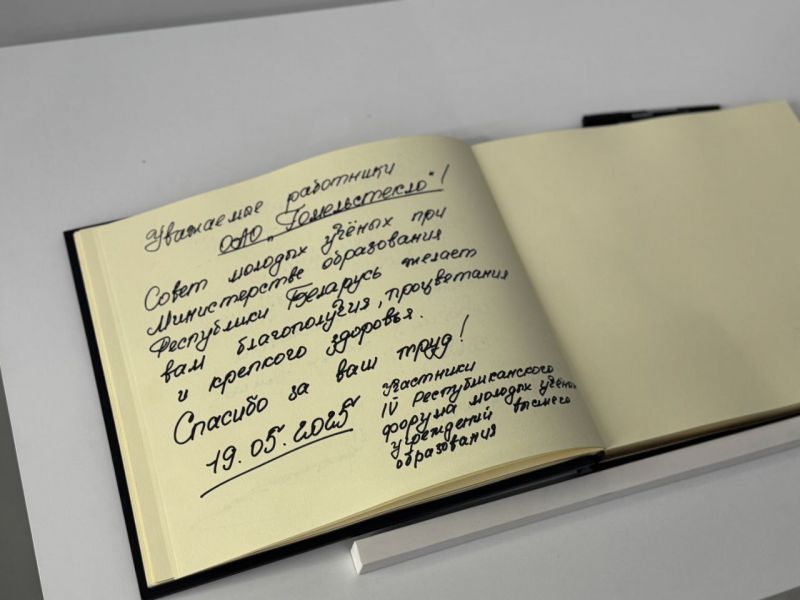 Уважаемые работники
ОАО „Гомельстекло"!
Совет молодых учёных при
Министерстве образования
Республики Беларусь желает
вам благополучия, процветания
и крепкого здоровья.
Спасибо за ваш труд!
19.05.2025
Участники
IV Республиканского
форума молодых учёных
учреждений высшего
образования